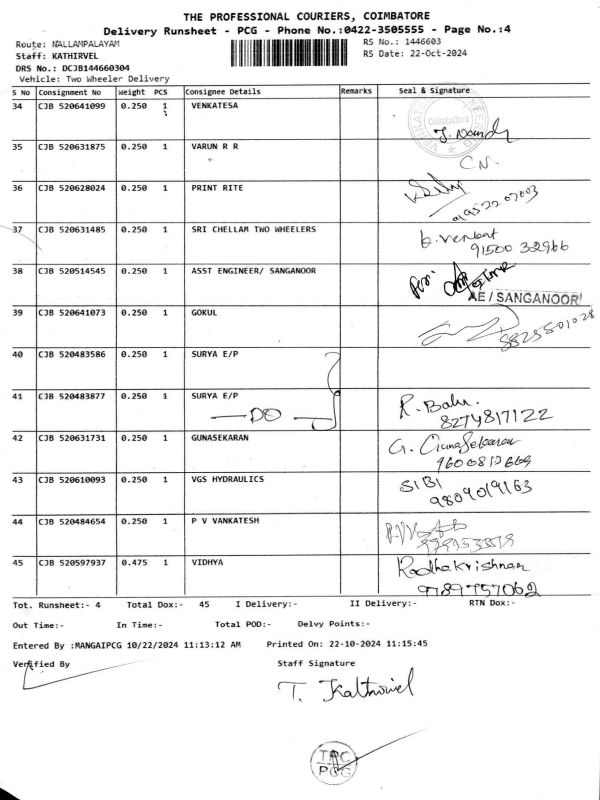 THE PROFESSIONAL COURIERS, COIMBATORE
Delivery Runsheet - PCG - Phone No.:0422-3505555 - Page No.:4
Route: NALLAMPALAYAM
RS No.: 1446603
Staff: KATHIRVEL
RS Date: 22-Oct-2024
DRS No.: DCJB144660304
Vehicle: Two Wheeler Delivery
S No Consignment No Weight PCS Consignee Details Remarks Seal & Signature
34 CJB 520641099 0.250 1 VENKATESA
Coimbatore
35 CJB 520631875 0.250 1 VARUN R R
C N.
36 CJB 520628024 0.250 1 PRINT RITE
37 CJB 520631485 0.250 1 SRI CHELLAM TWO WHEELERS G. Venkat
91500 32966
38 CJB 520514545 0.250 1 ASST ENGINEER/ SANGANOOR
AE / SANGANOOR
39 CJB 520641073 0.250 1 GOKUL
40 CJB 520483586 0.250 1 SURYA E/P
41 CJB 520483877 0.250 1 SURYA E/P R. Balu.
DO 8274817122
42 CJB 520631731 0.250 1 GUNASEKARAN G. Gunasekaran
43 CJB 520610093 0.250 1 VGS HYDRAULICS SIBI
9809019163
44 CJB 520484654 0.250 1 P V VANKATESH
45 CJB 520597937 0.475 1 VIDHYA Radhakrishnan
9789757062
Tot. Runsheet:- 4 Total Dox:- 45 I Delivery:- II Delivery:- RTN Dox:-
Out Time:- In Time:- Total POD:- Delvy Points:-
Entered By :MANGAIPCG 10/22/2024 11:13:12 AM Printed On: 22-10-2024 11:15:45
Verified By Staff Signature
T. Kathirvel
TPC
PCG